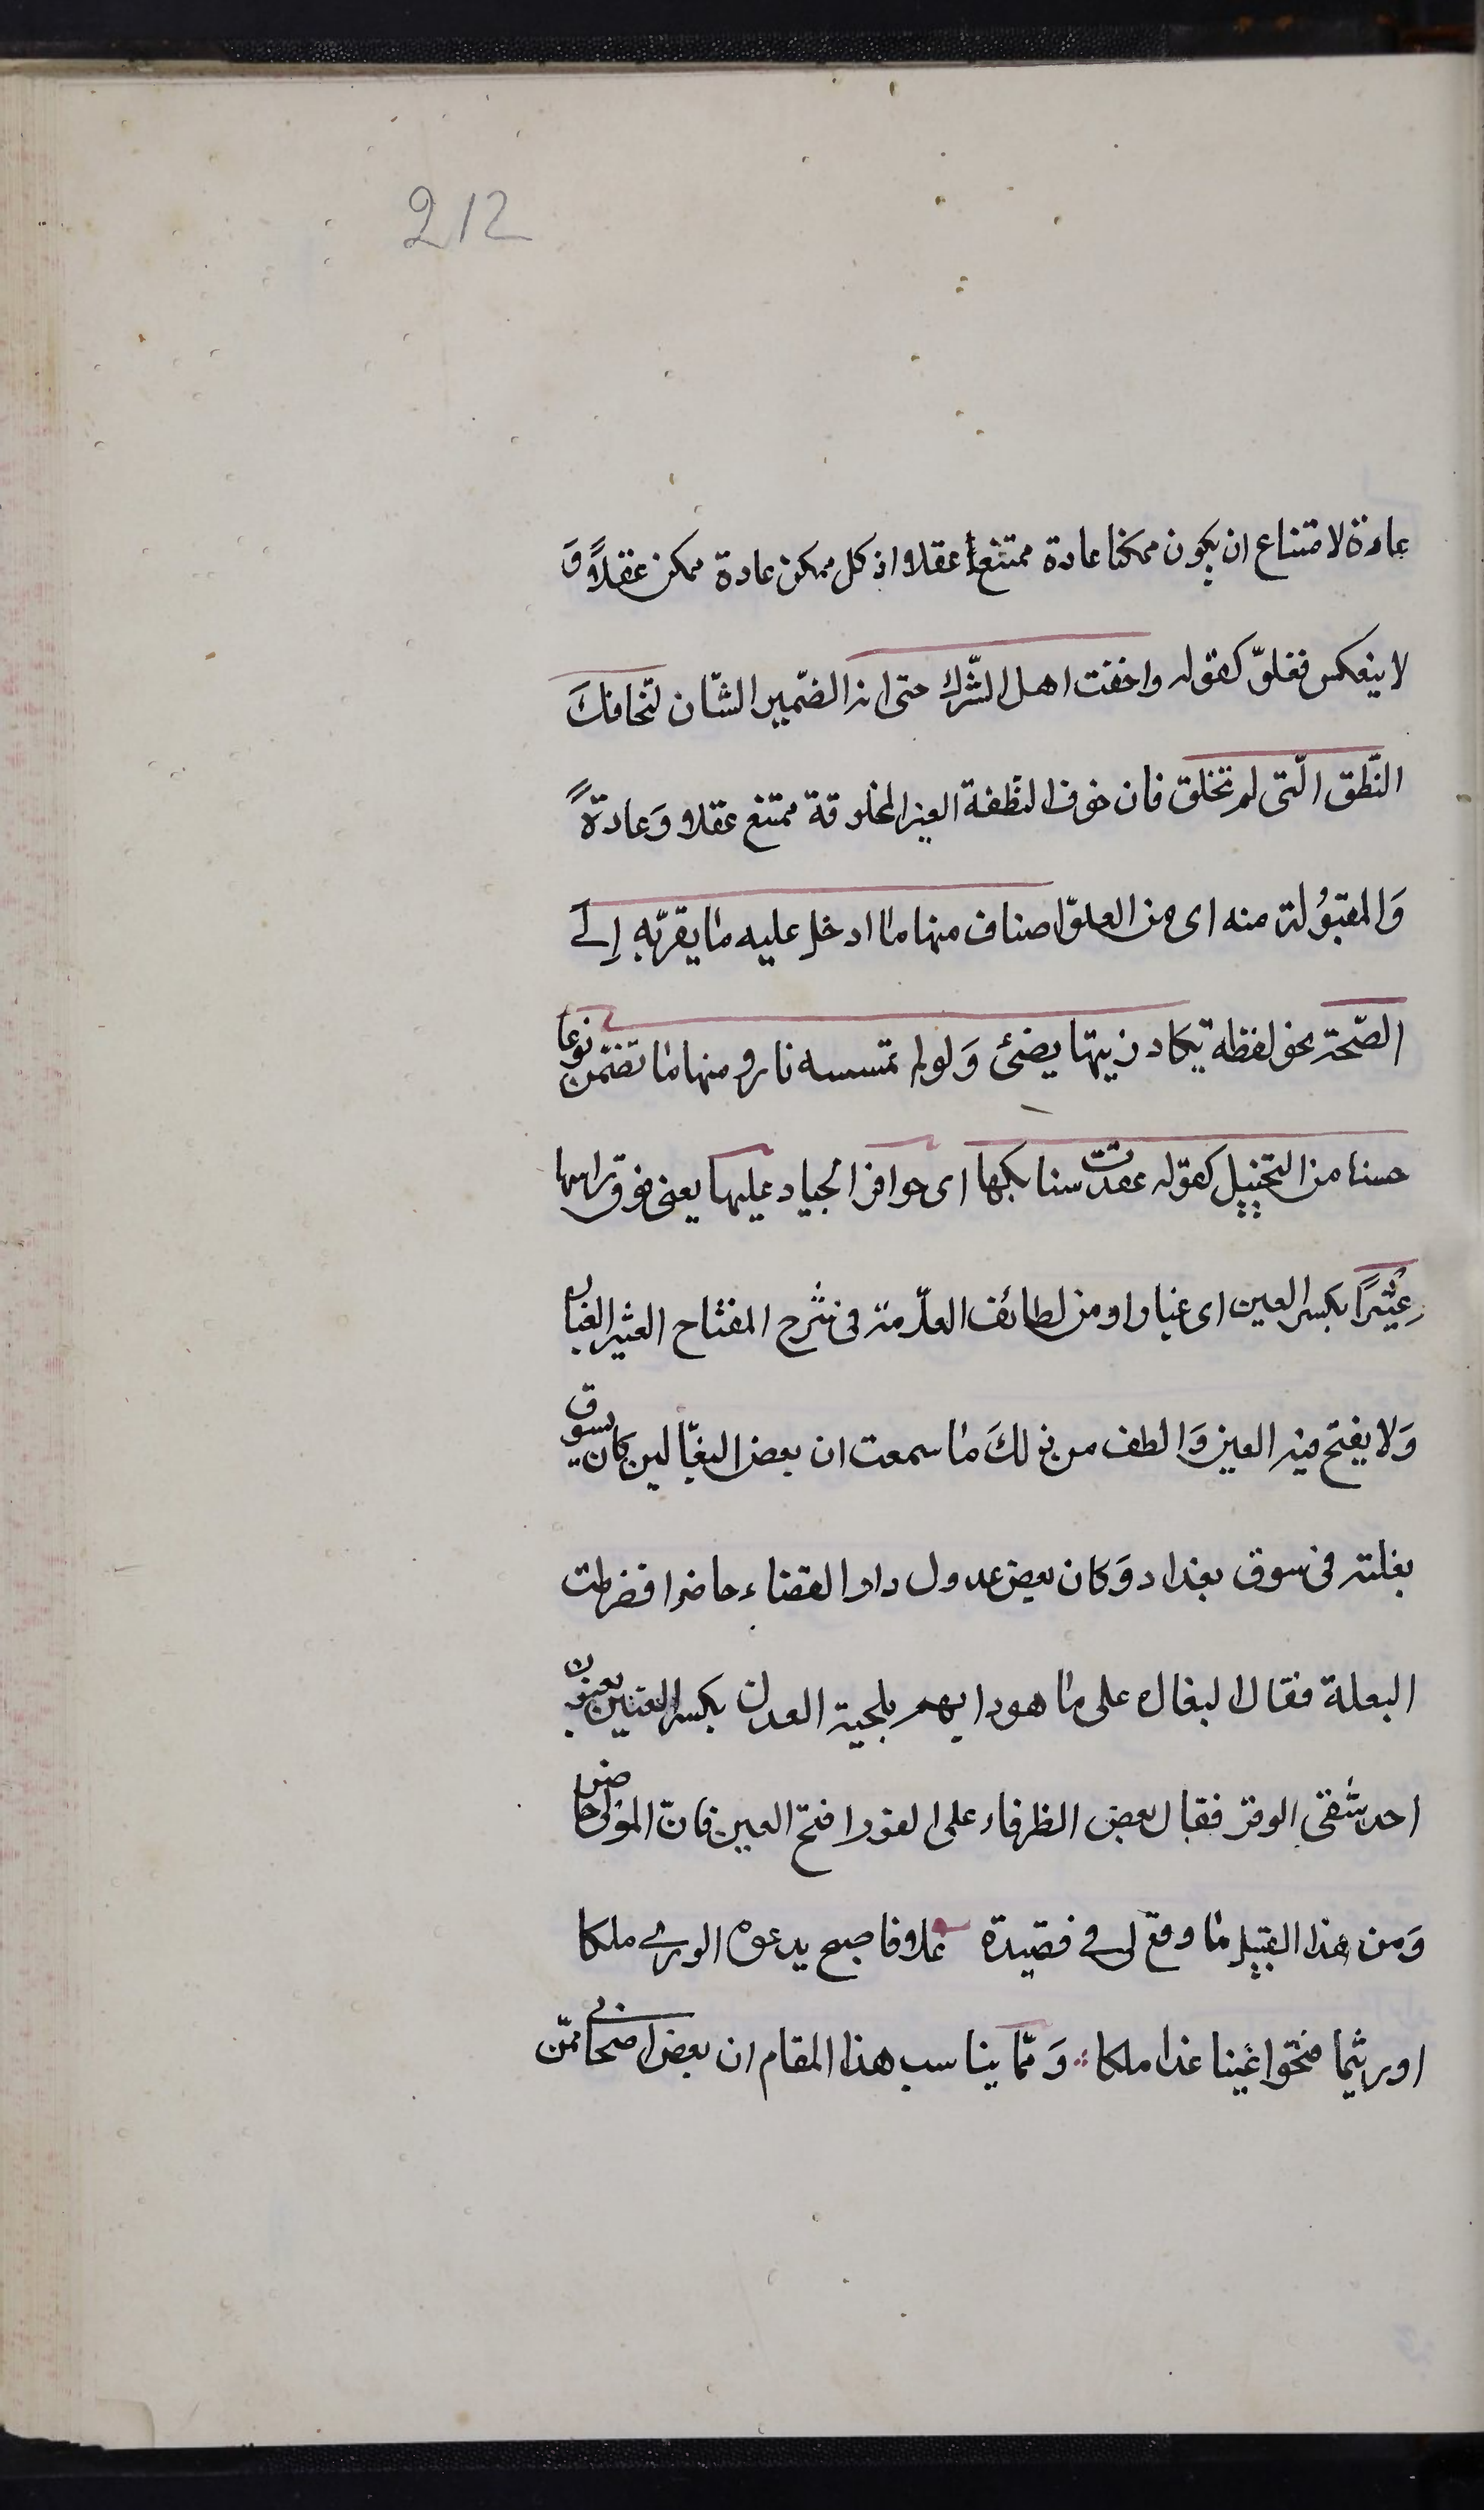 212
عادة لامتناع ان يكون ممكنا عادة ممتنعا عقلا اذ كل ممكن عادة ممكن عقلاً وَ
لا ينعكس فغلوّ كقوله واخفت اهل الشّرك حتى انه الضّمير الشّان لتخافكَ
النّطق الّتى لم تخلق فان خوف النّطفة الغير المخلوقة ممتنع عقلا وَعادةً
وَالمقبُولة منه اى من الغلوّ اصناف منها ما ادخل عليه ما يقرّبه اِلے
الصّحة نحو لفظه يكاد زيتها يضئ وَلو لم تمسسه نار و منها ما تضمّن نوعا
حسنا من التخييل كقوله عقدت سنابكها اى حوافر الجياد عليها يعنى فوق راسها
عِثْيَرًا بكسر العين اى غبارا ومن لطائف العلّامة فى شرح المفتاح العثير الغبار
وَلا يفتح فيه العين وَالطف من ذلكَ ما سمعت ان بعض البغّالين كان يسوق
بغلته فى سوق بغداد وَكان بعض عدول دار القضاء حاضرا فضرطت
البغلة فقال البغال على ما هو دابهم بلحية العدل بكسر العين يعنون
احد شقى الوقر فقال بعض الظرفاء على الفور افتح العين فانّ المولى حاضر
وَمن هذا القبيل ما وقع لى فے قصيدة علا فاصبح يدعوه الورے ملكا
وريثما فتحوا عينا غدا ملكا وَممّا يناسب هذا المقام ان بعض اصحابى ممّن